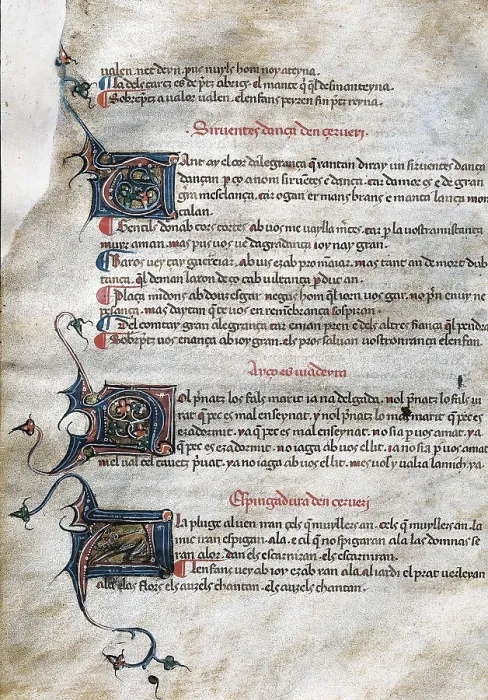 ualen. nec deyn. pus nuyls hom noy ateyna.
la dels carts es de p̃tz abrics. el mante q̃ q̃l desmanteyna.
Sobrep̃tz a ualor ualen. elenfans peyren sin p̃tz reyna.
Siruentes dança den cerueri.
Tant ay el cor dalegrança q̃ xantan diray un siruentes dança
dançan p̱ço a nom siruẽtes e dança. car damor es e de gran
gra mesclança. car ogan er mans brans e manta lança
catalan.
Gentils dona b cors cortes ab uos me uaylla m̃ces. car p̱ la uostramistança
muyr aman. mas pus uos ue dagradança ioy nay gran.
Baros uey çay guereiar. ab uos ez ab pro mãuar. mas tant an de mort
tança. q̃l deman laron deço cab uultança p̱duc an.
Plaça midons ab dous esgar. negus hom q̃l iorn uos gar. no p̃n enuy ne
pesança. mas daytan q̃ te uos en remẽbrança sospiran.
Del comtay gran alegrança car enian pren e dels altres fiança
Sobrep̃tz uos enança ab ioy gran. els pros saluan uostronrança elenfan.
Ayço es uiadeyra
Nol p̃natz lo fals marit ia na delgada. nol p̃natz lo fals iu
rat q̃ pec es mal enseynat. y nol p̃natz lo mal marit q̃ pec es
ez adormit. ya q̃ pec es mal enseynat. no sia p̱ uos amat. ya
q̃ pec es ez adormit. no iaga ab uos el lit. ia no sia p̱ uos amat
mel ual cel cauetz p̃uat. ya no iaga ab uos el lit. mes uos y ualra lamich. ya.
Espingadura den cerueri
A la pluge al uen iran cels q̃ muyllers an. cels q̃ muyllers an. la
nuc iran espigan. ala. e cil q̃ no spigaran ala las domnas se
ran alor. dan els escarniran. els escarniran.
Lenfans uey ab ioy ez ab xan ala. al iardi el prat uerleyan
ala elas flors els auzels chantan. els auzels chantan.